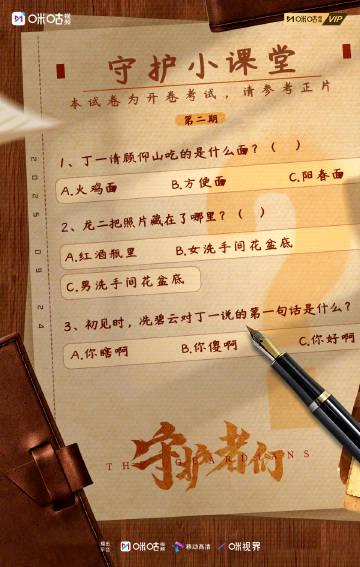 咪咕视频
咪咕视频 VIP
守护小课堂
本试卷为开卷考试，请参考正片
第二期
1、丁一请顾仰山吃的是什么面？（ ）
A.火鸡面 B.方便面 C.阳春面
2、龙二把照片藏在了哪里？（ ）
A.红酒瓶里 B.女洗手间花盆底
C.男洗手间花盆底
3、初见时，冼碧云对丁一说的第一句话是什么？
A.你瞎啊 B.你傻啊 C.你好啊
2025 09 24
守护者们
THE GUARDIANS
出品平台 咪咕视频 移动高清 咪视界